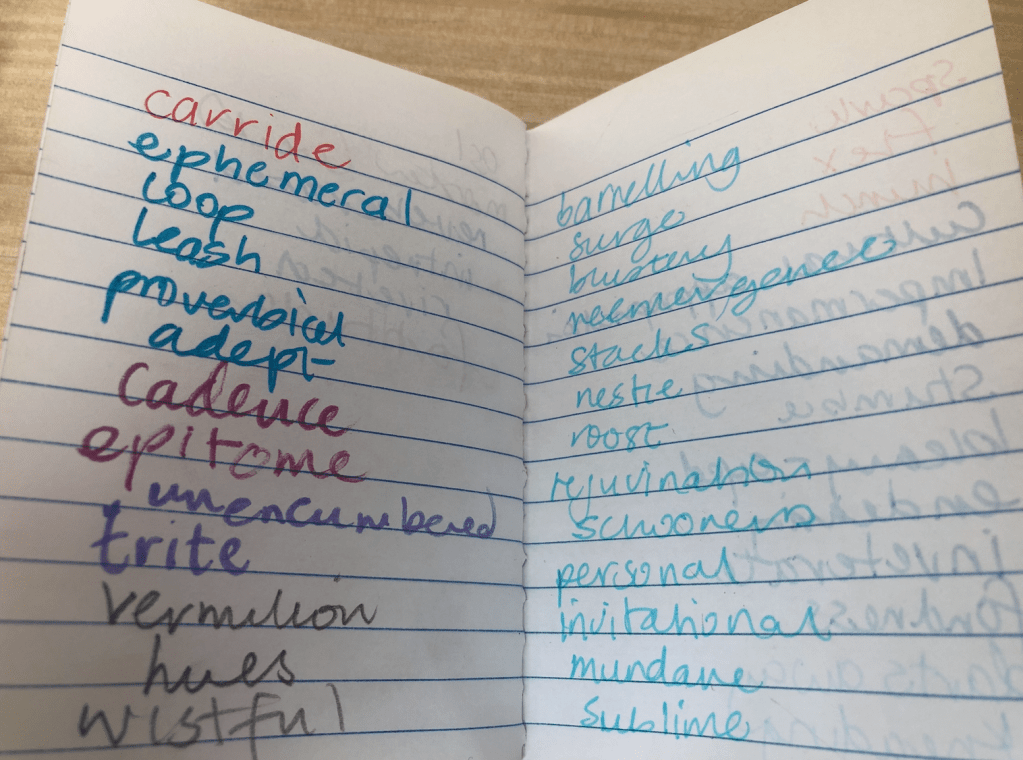 carride
ephemeral
loop
leash
proverbial
adept
cadence
epitome
unencumbered
trite
vermilion
hues
wistful
surge
stacks
nestle
roost
schooners
personal
invitational
mundane
sublime